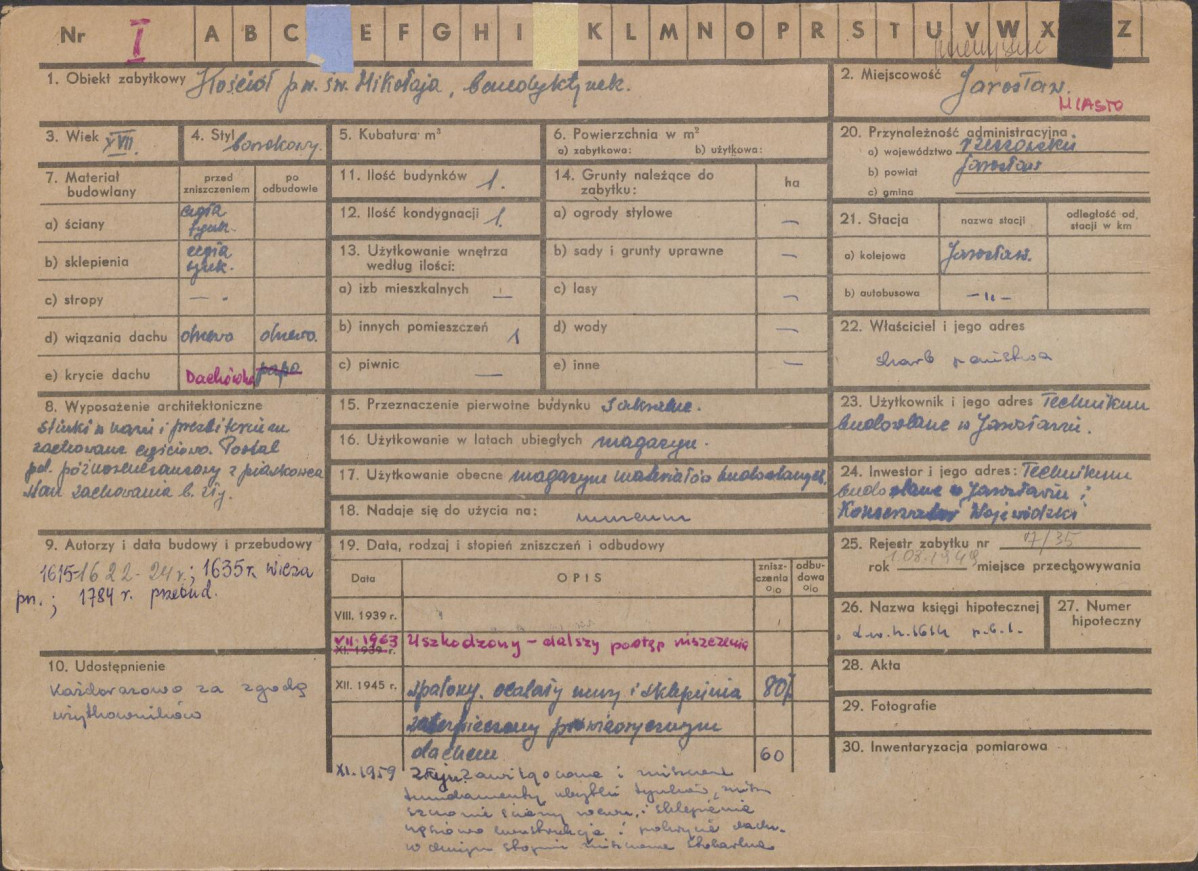 Nr I A B C E F G H I K L M N O P R S T U V W X Z
1. Obiekt zabytkowy Kościół p.w. św. Mikołaja, benedyktynek.
2. Miejscowość Jarosław.
MIASTO
3. Wiek XVII.
4. Styl barokowy.
5. Kubatura m³
6. Powierzchnia w m²
a) zabytkowa: b) użytkowa:
7. Materiał budowlany
przed zniszczeniem
po odbudowie
a) ściany cegła tynk.
b) sklepienia cegła tynk.
c) stropy — .
d) wiązania dachu drzewo drzewo.
e) krycie dachu Dachówka papa
8. Wyposażenie architektoniczne
Stiuki w nawi i prezbiterium
zachowane częściowo. Portal
pd. późnorenesansowy z piaskowca
Stan zachowania b. zły.
9. Autorzy i data budowy i przebudowy
1615-1622-24 r.; 1635 r. wieża
pn.; 1784 r. przebud.
10. Udostępnienie
Każdorazowo za zgodą
użytkowników
11. Ilość budynków 1.
12. Ilość kondygnacji 1.
13. Użytkowanie wnętrza
według ilości:
a) izb mieszkalnych —
b) innych pomieszczeń 1
c) piwnic —
14. Grunty należące do
zabytku:
ha
a) ogrody stylowe —
b) sady i grunty uprawne —
c) lasy —
d) wody —
e) inne —
15. Przeznaczenie pierwotne budynku Sakralne.
16. Użytkowanie w latach ubiegłych magazyn.
17. Użytkowanie obecne magazyn materiałów budowlanych.
18. Nadaje się do użycia na: muzeum
19. Data, rodzaj i stopień zniszczeń i odbudowy
Data
OPIS
znisz-
czenia
o/o
odbu-
dowa
o/o
VIII. 1939 r.
VII. 1963 Uszkodzony – dalszy postęp niszczenia
XI. 1939 r.
XII. 1945 r. spalony. ocalały mury i sklepienia 80%
zabezpieczony prowizorycznym
dachem 60
XI. 1959 Zawilgocone i
fundamenty, ubytki tynków,
ściany i sklepienie
konstrukcja i pokrycie dachu.
w dużym stopniu
20. Przynależność administracyjna
a) województwo rzeszowskie
b) powiat Jarosław
c) gmina
21. Stacja
nazwa stacji
odległość od
stacji w km
a) kolejowa Jarosław.
b) autobusowa -"-
22. Właściciel i jego adres
skarb państwa
23. Użytkownik i jego adres Technikum
budowlane w Jarosławiu.
24. Inwestor i jego adres: Technikum
budowlane w Jarosławiu i
Konserwator Wojewódzki
25. Rejestr zabytku nr 17/35
rok 1.08.1949 miejsce przechowywania
26. Nazwa księgi hipotecznej
27. Numer
hipoteczny
28. Akta
29. Fotografie
30. Inwentaryzacja pomiarowa